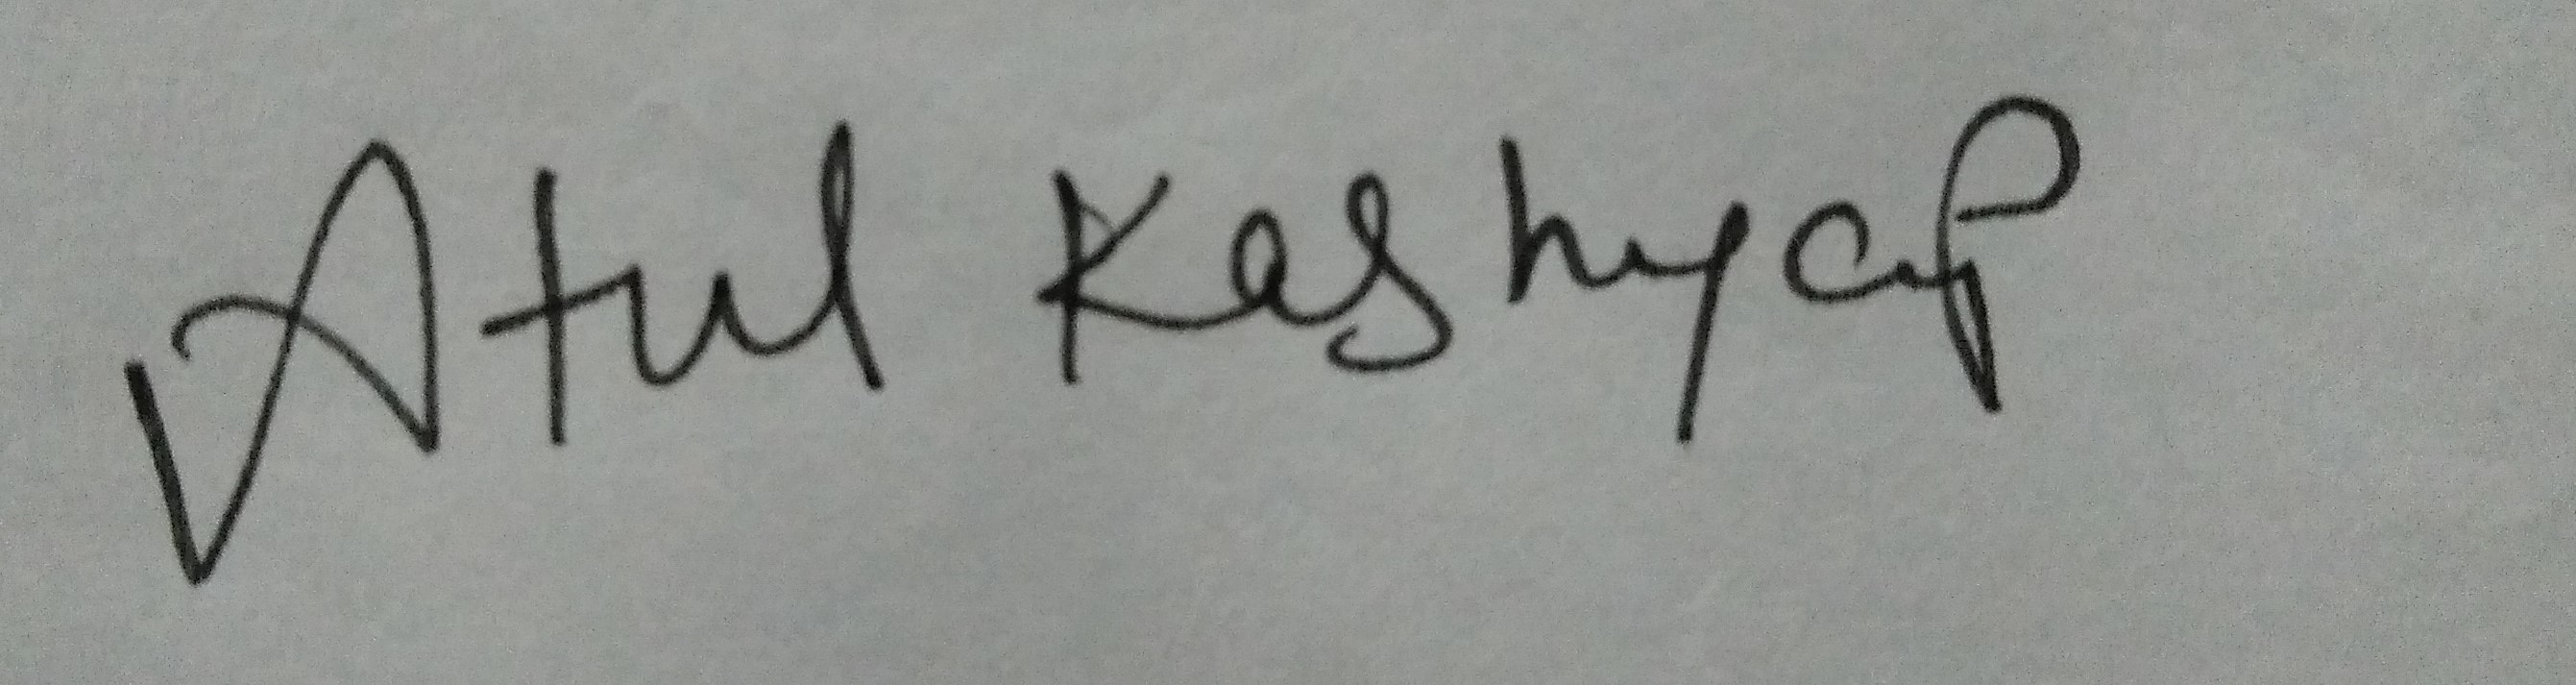 Atul Kashyap